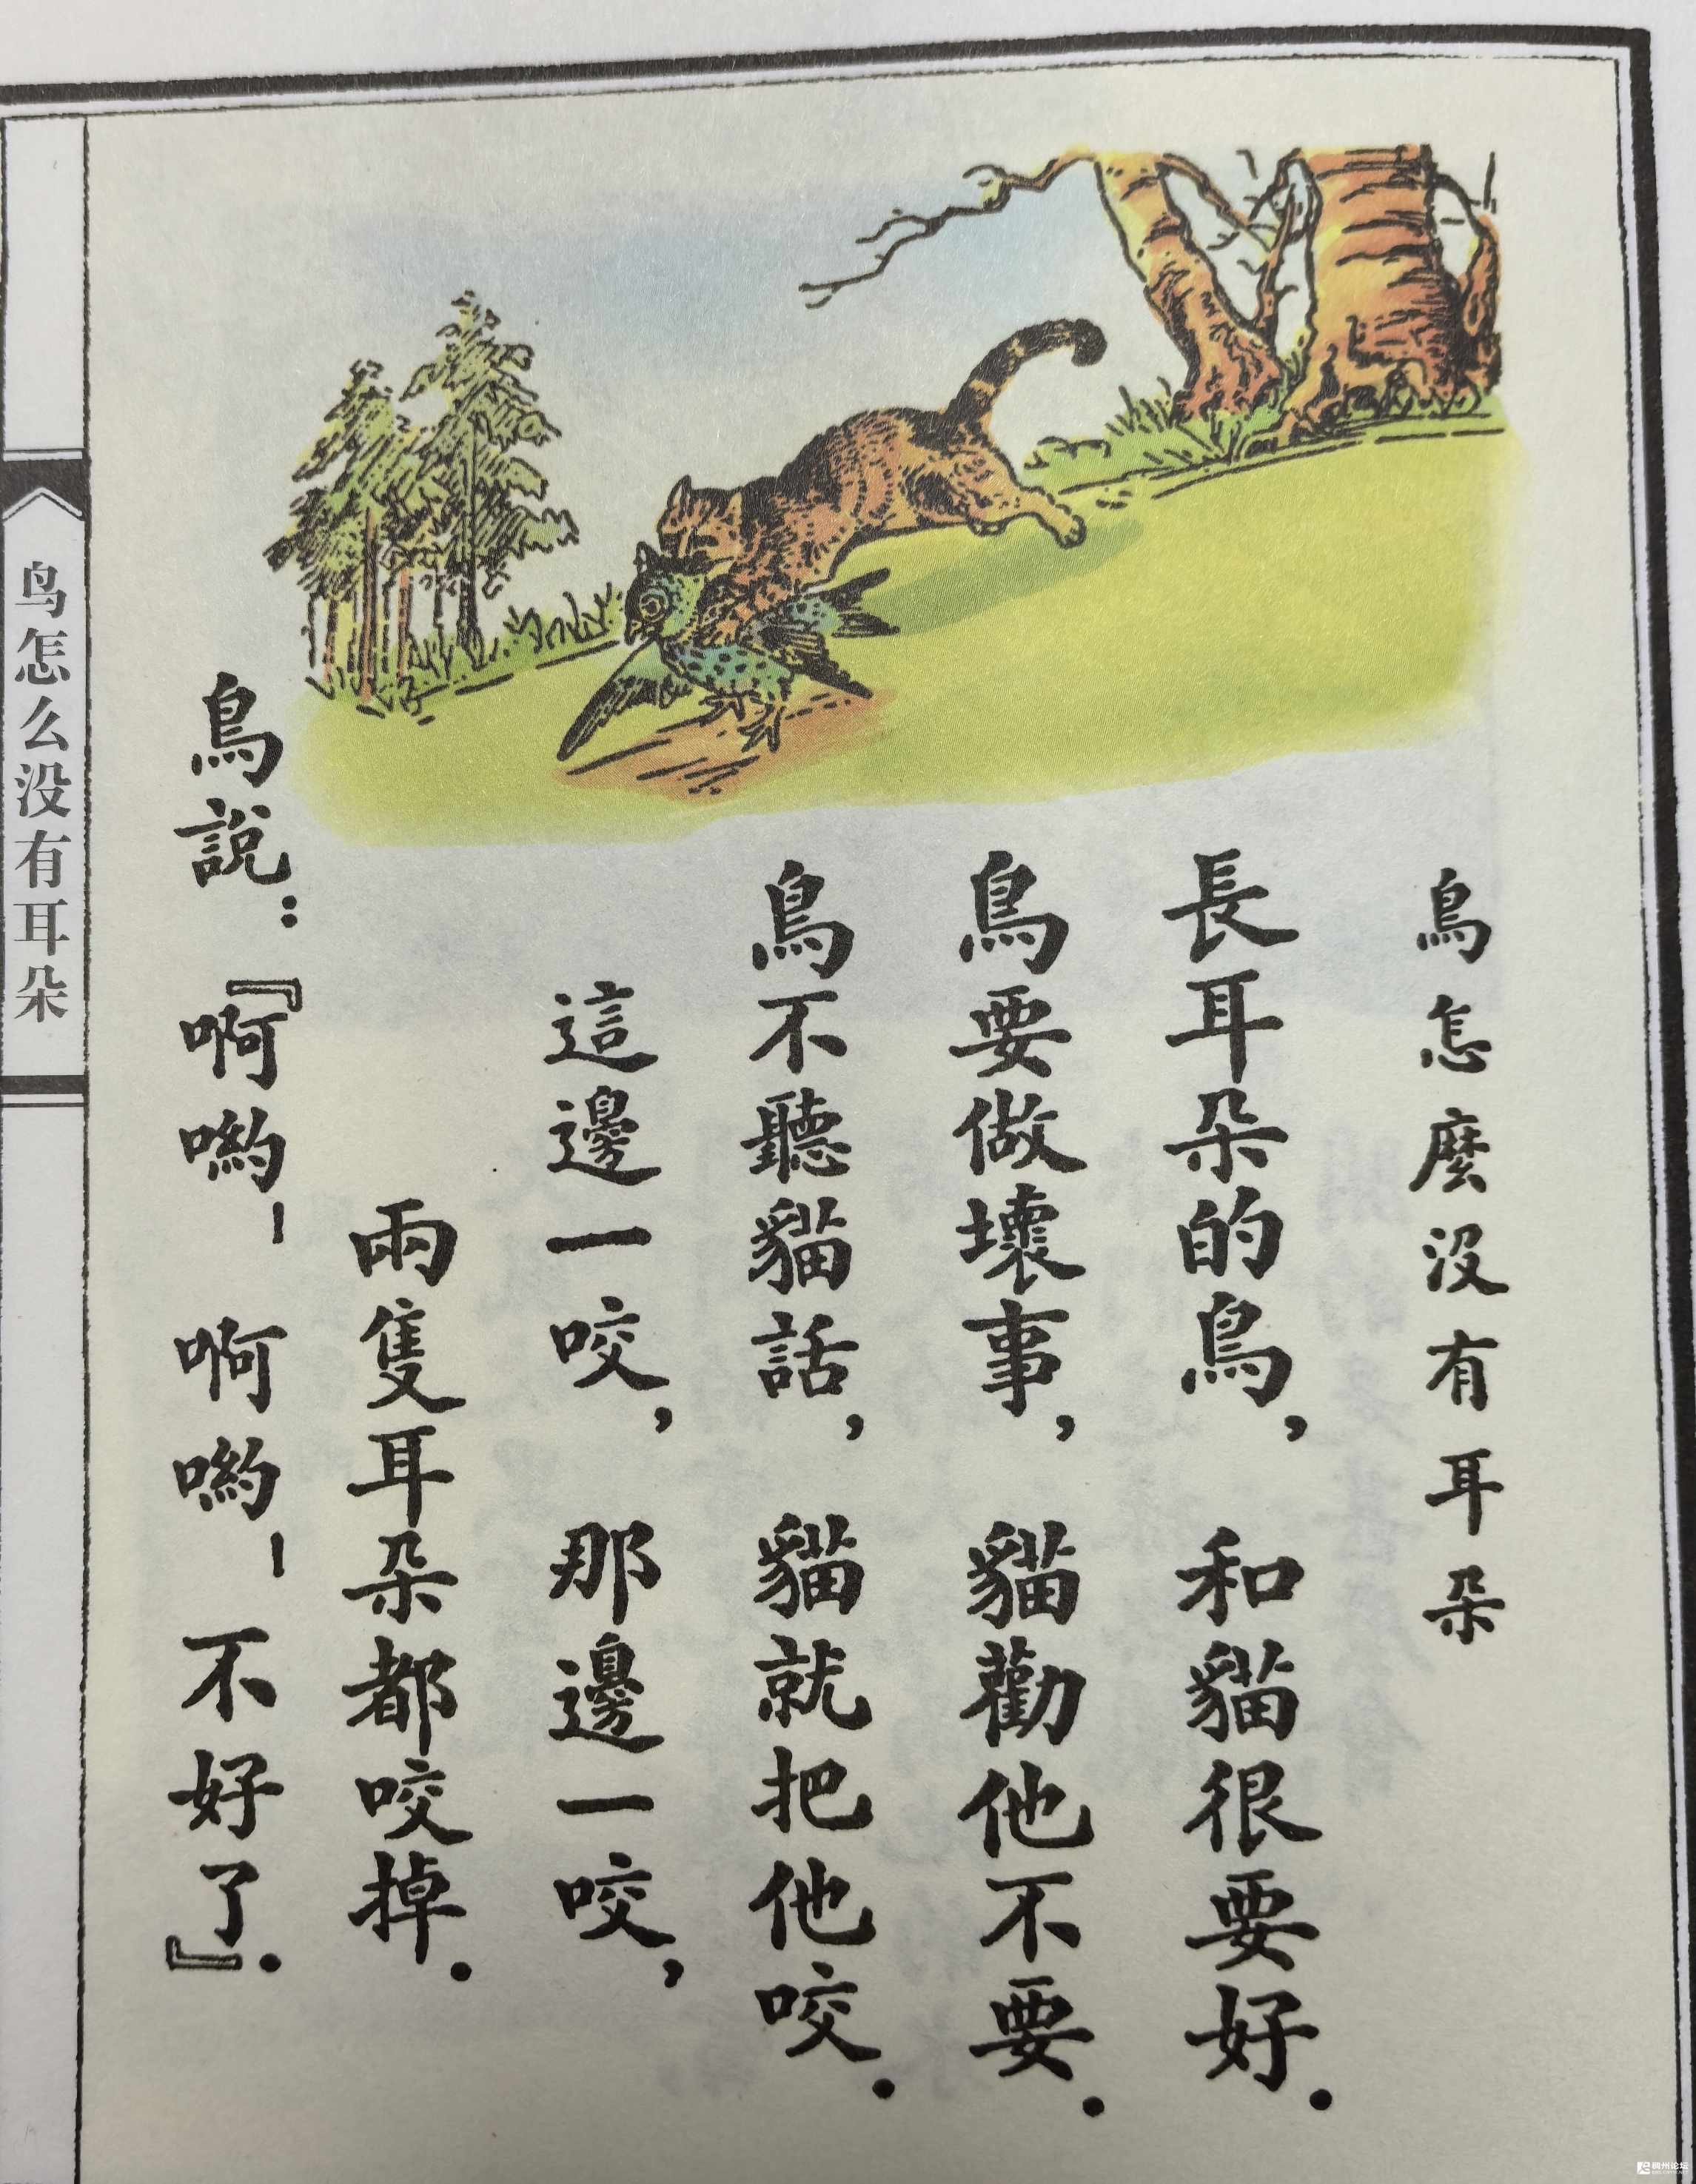 鳥怎麼沒有耳朵
長耳朵的鳥，和貓很要好．
鳥要做壞事，貓勸他不要．
鳥不聽貓話，貓就把他咬．
這邊一咬，那邊一咬，
兩隻耳朵都咬掉．
鳥說：『啊喲－啊喲－不好了．』
鸟怎么没有耳朵
稠州论坛